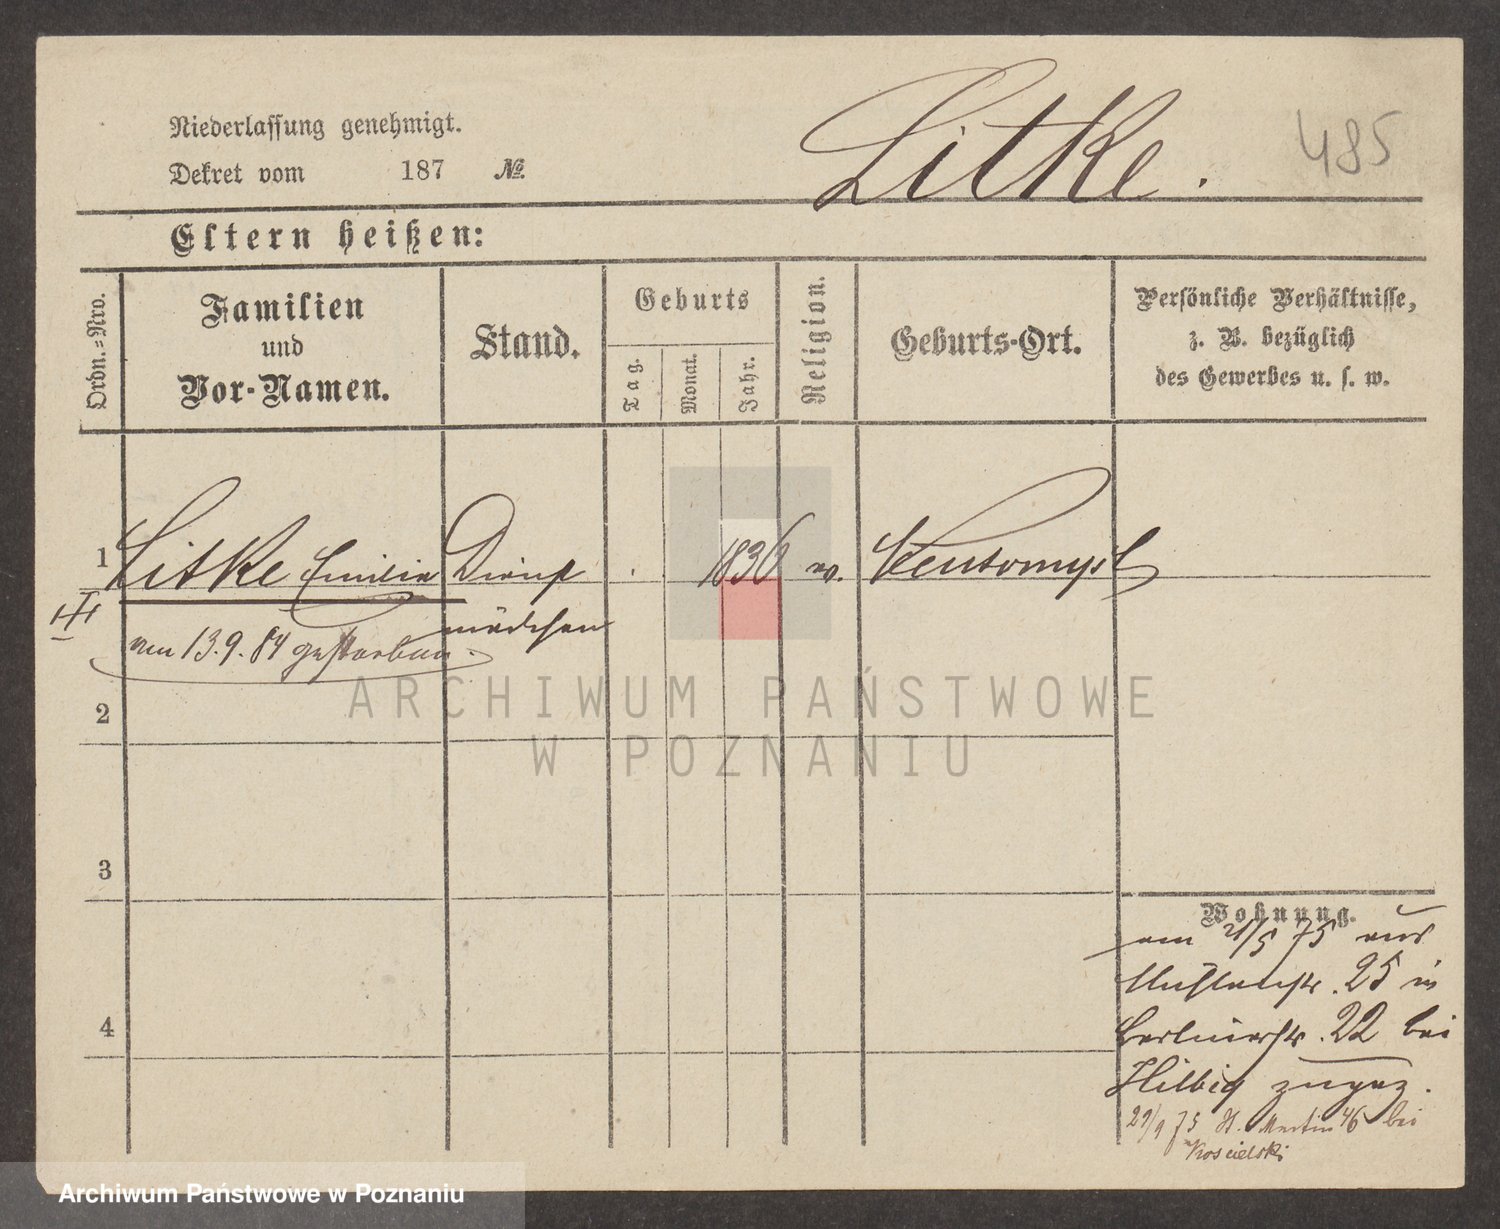 Litke.
485
Niederlassung genehmigt.
Dekret vom 187 №.
Eltern heißen:
Ordn.=Nro.
Familien
und
Vor-Namen.
Stand.
Geburts
Tag.
Monat.
Jahr.
Religion.
Geburts-Ort.
Persönliche Verhältnisse,
z. B. bezüglich
des Gewerbes u. s. w.
1 Litke Emilie Dienst 1836 ev. Neutomysl
mädchen
am 13.9.84 gestorben.
2
ARCHIWUM PAŃSTWOWE
W POZNANIU
3
4
Wohnung.
am 21/5 75 aus
Mühlenstr. 25 in
Berlinerstr. 22 bei
Hilbig zugez.
29/9 75 St. Martin 46 bei
Koscielski
Archiwum Państwowe w Poznaniu